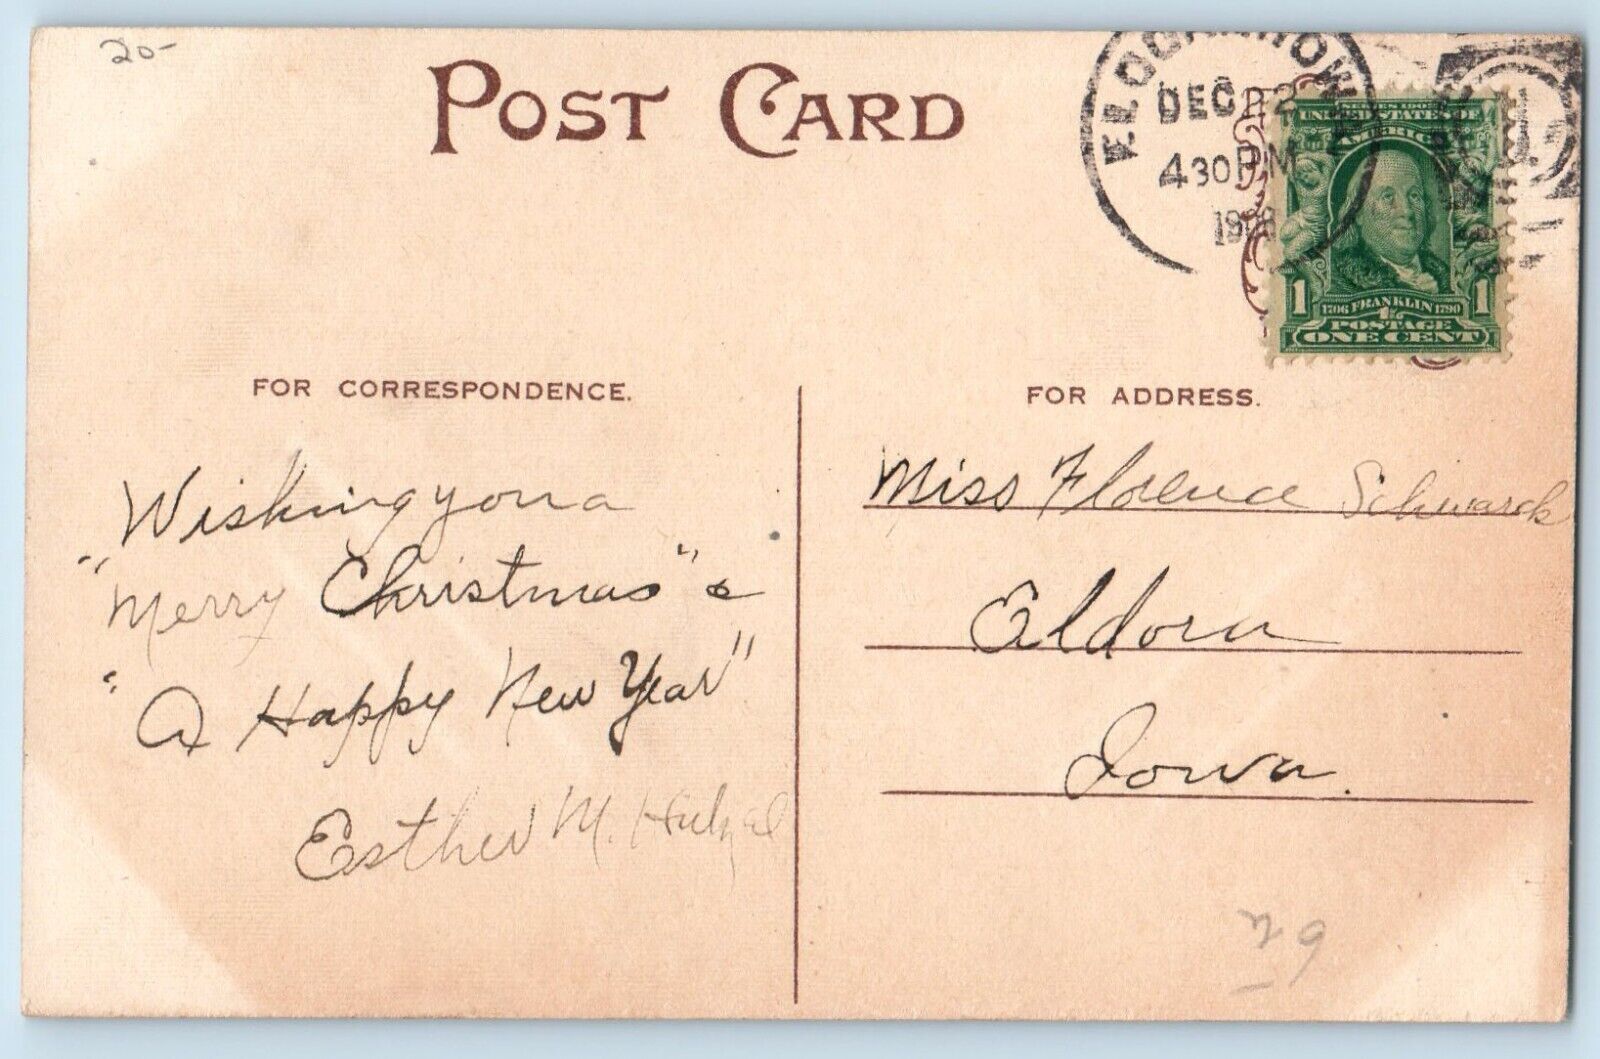 20-
POST CARD
DEC 22
430 PM
1908
SERIES 1902
UNITED STATES OF
AMERICA
1 1
1706 FRANKLIN 1790
POSTAGE
ONE CENT
FOR CORRESPONDENCE.
Wishing you a
"Merry Christmas" &
"A Happy New Year"
Esther M.
FOR ADDRESS.
Miss Florence Schwarck
Eldora
Iowa.